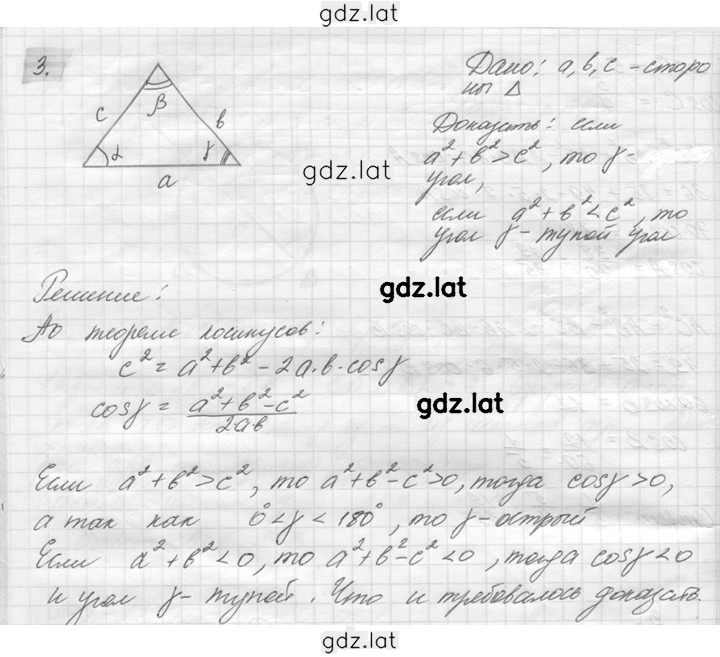 gdz.lat
3.
β
c
в
α
γ
a
Дано: a, в, c - сторо
ны Δ
Доказать: если
a² + в² > c², то γ -
угол,
если a² + в² < c², то
угол γ - тупой угол
gdz.lat
gdz.lat
Решение:
По теореме косинусов:
c² = a² + в² - 2a·в·cosγ
cosγ = (a² + в² - c²)/(2aв)
gdz.lat
Если a² + в² > c², то a² + в² - c² > 0, тогда cosγ > 0,
а так как 0° < γ < 180°, то γ - острый
Если a² + в² < 0, то a² + в² - c² < 0, тогда cosγ < 0
и угол γ - тупой. Что и требовалось доказать.
gdz.lat